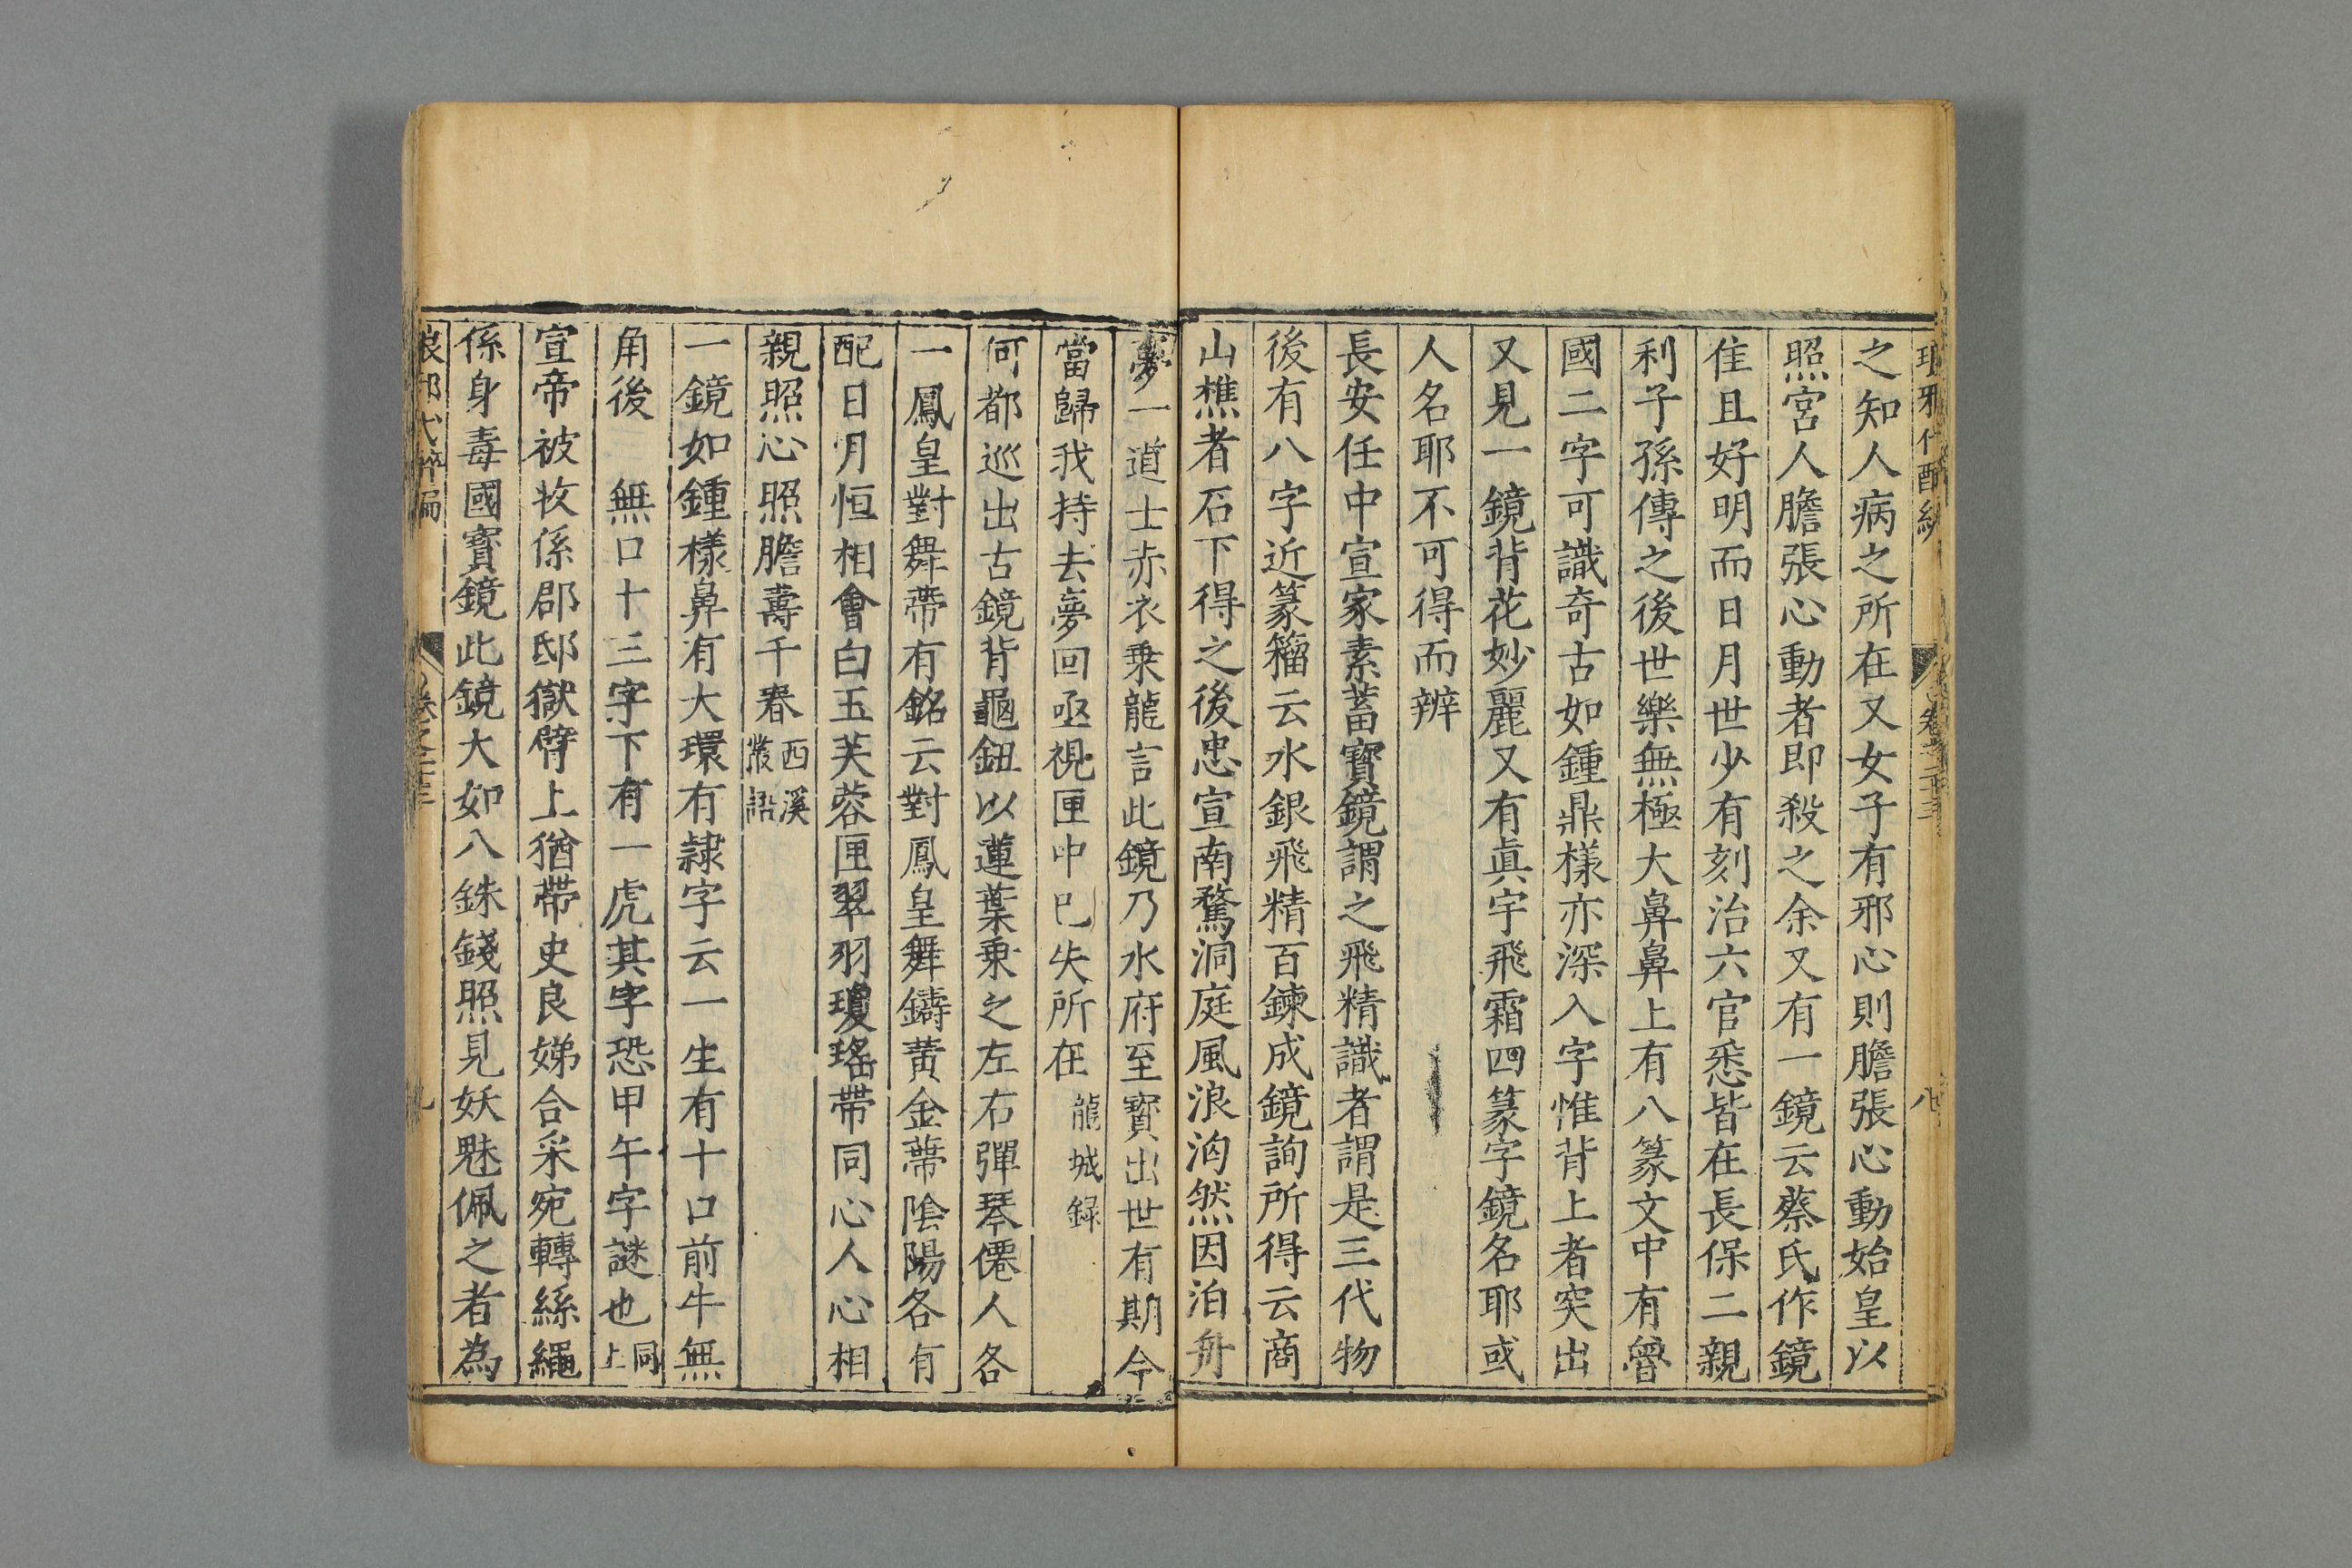 之知人病之所在又女子有邪心則膽張心動始皇以
照宮人膽張心動者即殺之余又有一鏡云蔡氏作鏡
佳且好明而日月世少有刻治六官悉皆在長保二親
利子孫傳之後世樂無極大鼻鼻上有八篆文中有曾
國二字可識奇古如鍾鼎樣亦深入字惟背上者突出
又見一鏡背花妙麗又有眞字飛霜四篆字鏡名耶或
人名耶不可得而辨
長安任中宣家素蓄寶鏡謂之飛精識者謂是三代物
後有八字近篆籀云水銀飛精百鍊成鏡詢所得云商
山樵者石下得之後忠宣南騖洞庭風浪洶然因泊舟
夢一道士赤衣乗龍言此鏡乃水府至寶出世有期今
當歸我持去夢回亟視匣中已失所在龍城録
何都巡出古鏡背龜鈕以蓮葉乗之左右彈琴僊人各
一鳳皇對舞帶有銘云對鳳皇舞鑄黃金蔕陰陽各有
配日月恒相會白玉芙蓉匣翠羽瓊瑤帶同心人心相
親照心照膽壽千春西溪叢語
一鏡如鍾樣鼻有大環有隷字云一生有十口前牛無
角後 無口十三字下有一虎其字恐甲午字謎也同上
宣帝被收係郡邸獄臂上猶帶史良娣合采宛轉絲繩
係身毒國寳鏡此鏡大如八銖錢照見妖魅佩之者為